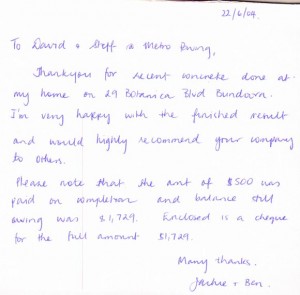 22/6/04.
To David + Steff @ Metro Paving,
Thankyou for recent concrete done at
my home on 29 Botanica Blvd Bundoora.
I'm very happy with the finished result
and would highly recommend your company
to others.
Please note that the amt of $500 was
paid on completion and balance still
owing was $1,729. Enclosed is a cheque
for the full amount $1,729.
Many thanks.
Jackie + Ben.